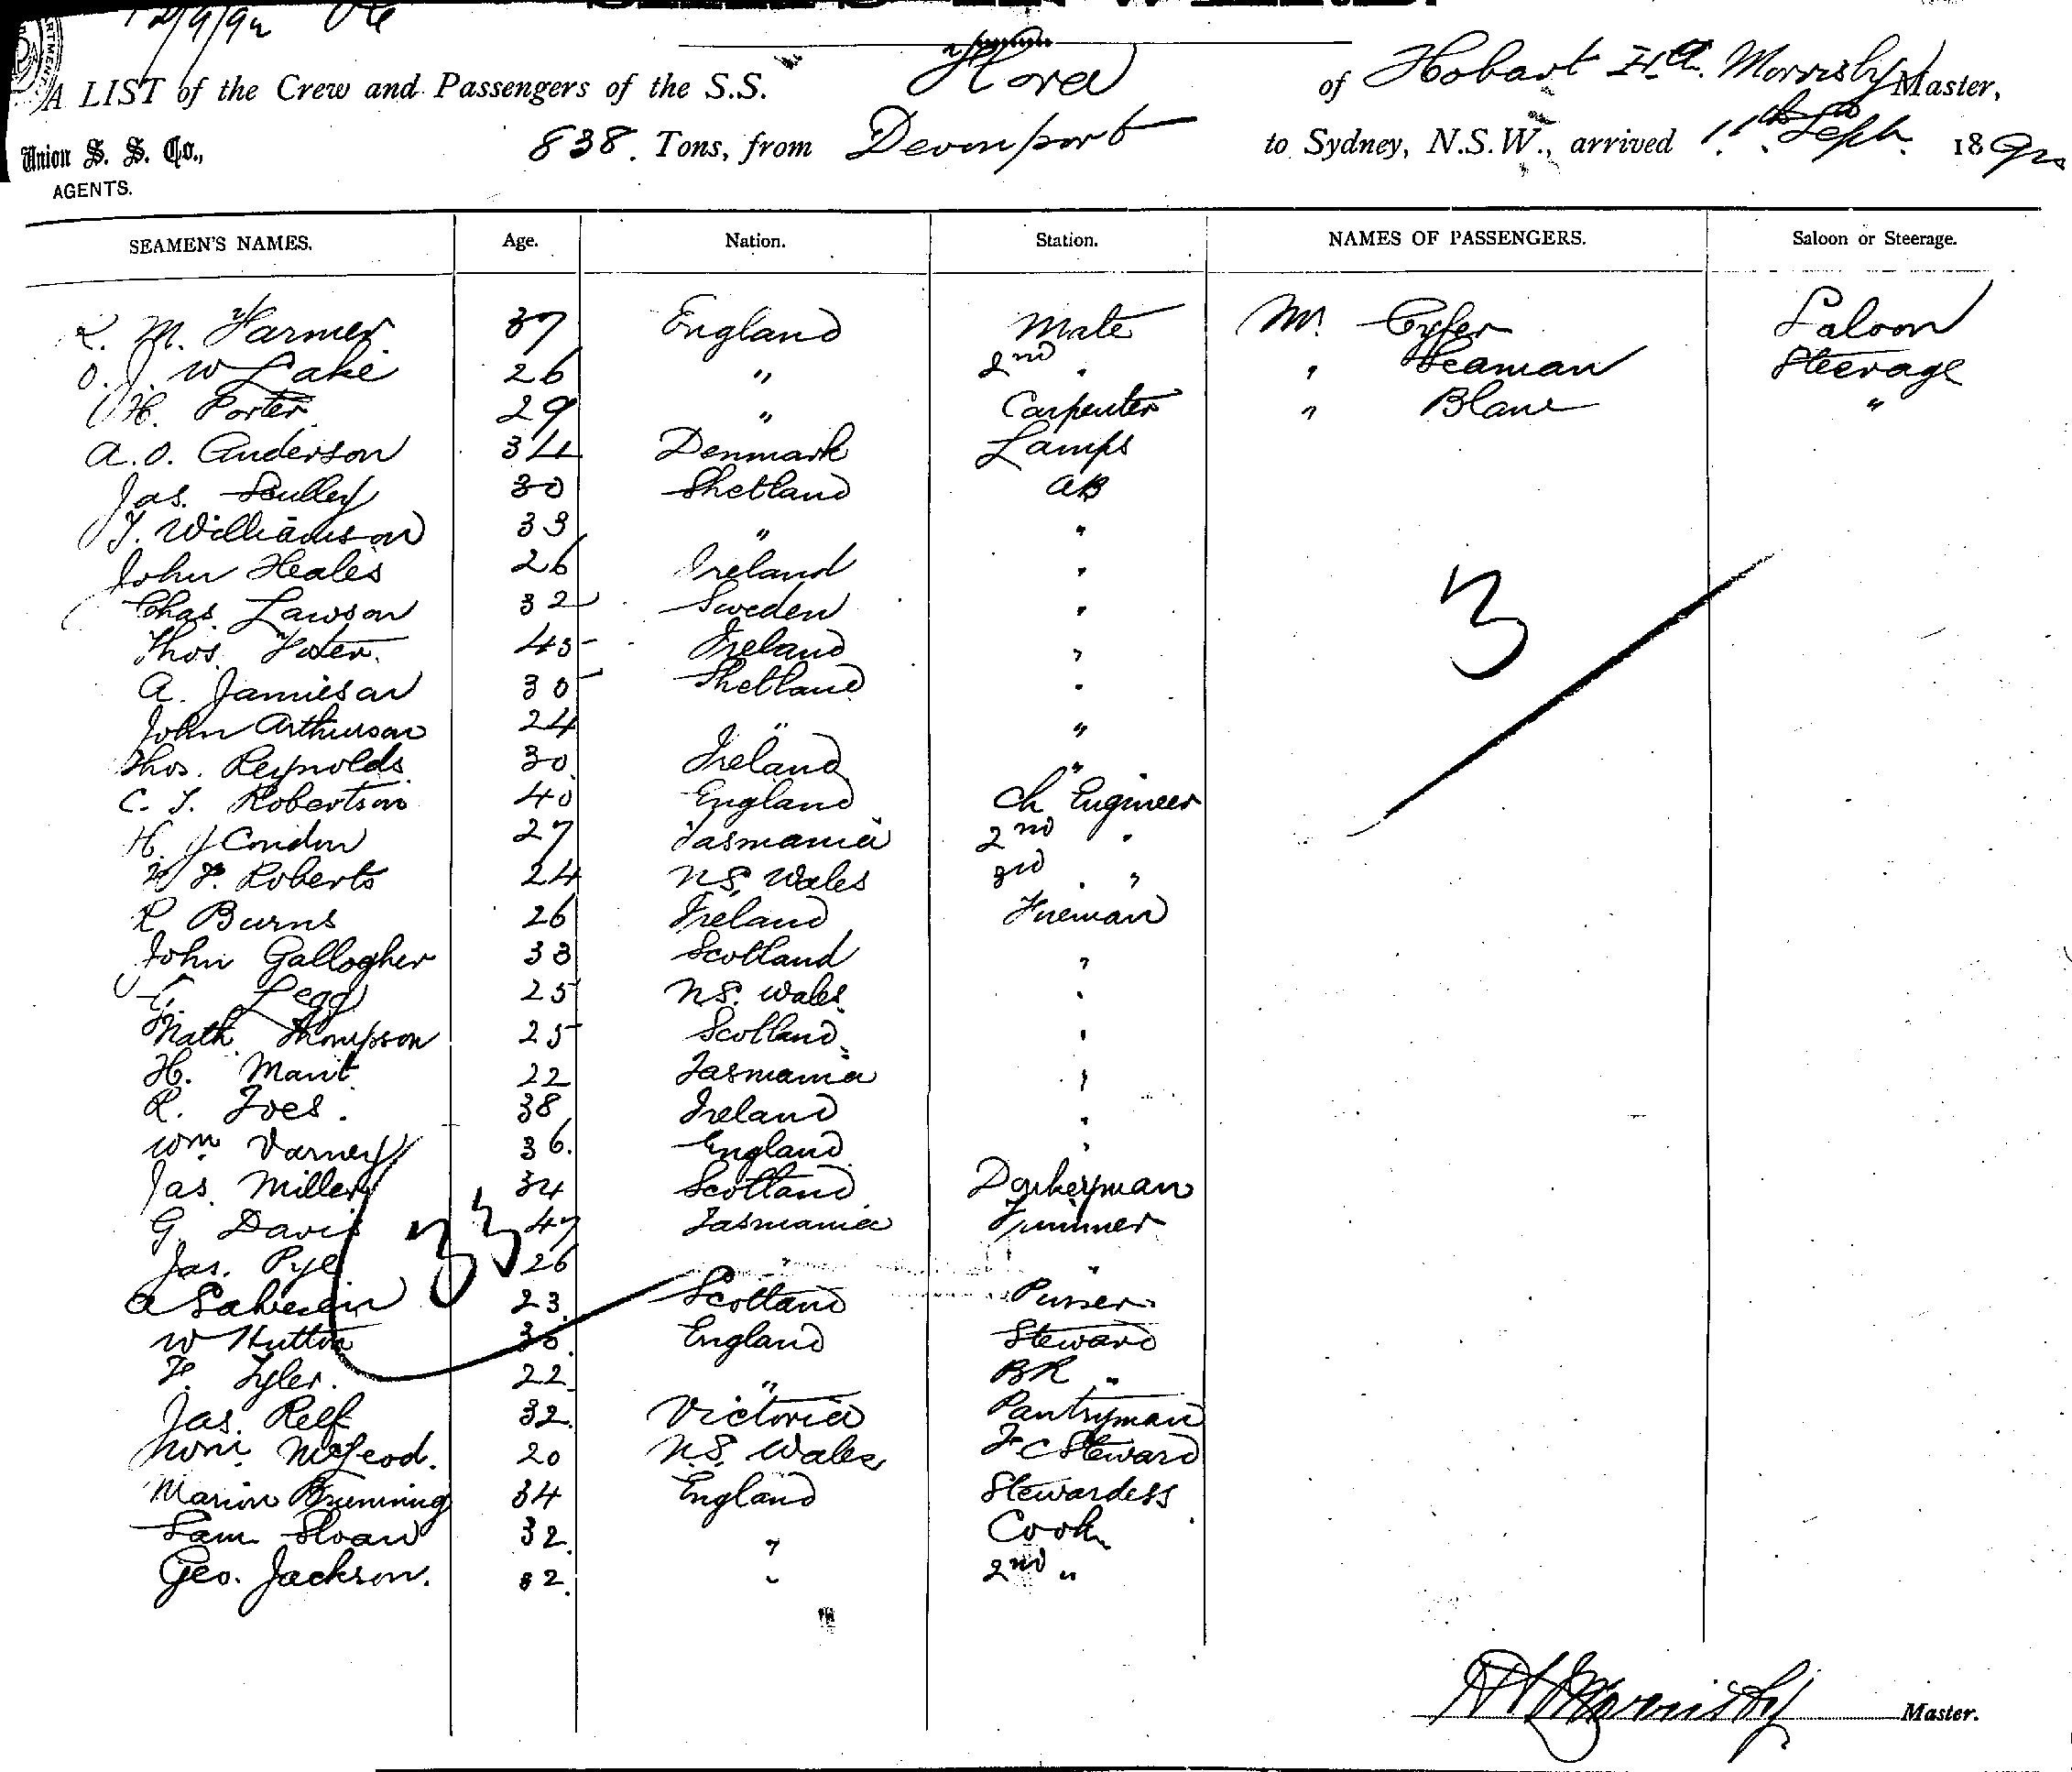 12/9/92
A LIST of the Crew and Passengers of the S.S. Flora of Hobart H.A. Morrisby Master,
Union S. S. Co., 838. Tons, from Devonport to Sydney, N.S.W., arrived 11th Sept. 1892
AGENTS.
SEAMEN'S NAMES. Age. Nation. Station. NAMES OF PASSENGERS. Saloon or Steerage.
R. M. Farmer 37 England Mate Mr. Saloon
O. J. W Lake 26 " 2nd " " Seaman Steerage
H. Porter 29 " Carpenter " Blane "
A. O. Anderson 34 Denmark Lamps
Jas. Sculley 30 Shetland AB
T. Williamson 33 " "
John Heales 26 Ireland "
Chas. Lawson 32 Sweden "
Thos. 45 Ireland "
A. Jamieson 30 Shetland "
John Arthurson 24 " "
Thos. Reynolds 30 Ireland "
C. T. Robertson 40 England Ch Engineer
H. J Condon 27 Tasmania 2nd "
F. Roberts 24 N.S. Wales 3rd "
R Burns 26 Ireland Fireman
John Gallogher 33 Scotland "
Legg 25 N.S. Wales "
Nath. Thompson 25 Scotland "
H. Mant 22 Tasmania "
R. Ives. 38 Ireland "
Wm Varney 36. England "
Jas. Miller 34 Scotland Donkeyman
G. Davis 47 Tasmania Trimmer
Jas. Pye 26 " "
A 23. Scotland Purser
W Hutton 30. England Steward
F. Tyler. 22 " BR "
Jas. Relf 32. Victoria Pantryman
McLeod. 20 N.S. Wales F C Steward
Marion Brunning 34 England Stewardess
Sam Sloan 32. " Cook
Geo. Jackson. 32. " 2nd "
33
3
H A Morrisby Master.